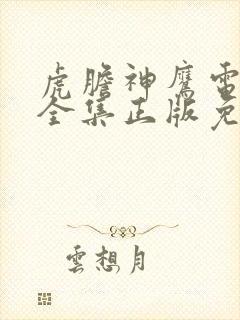 虎膽神鷹電
全集正版免
雲想月